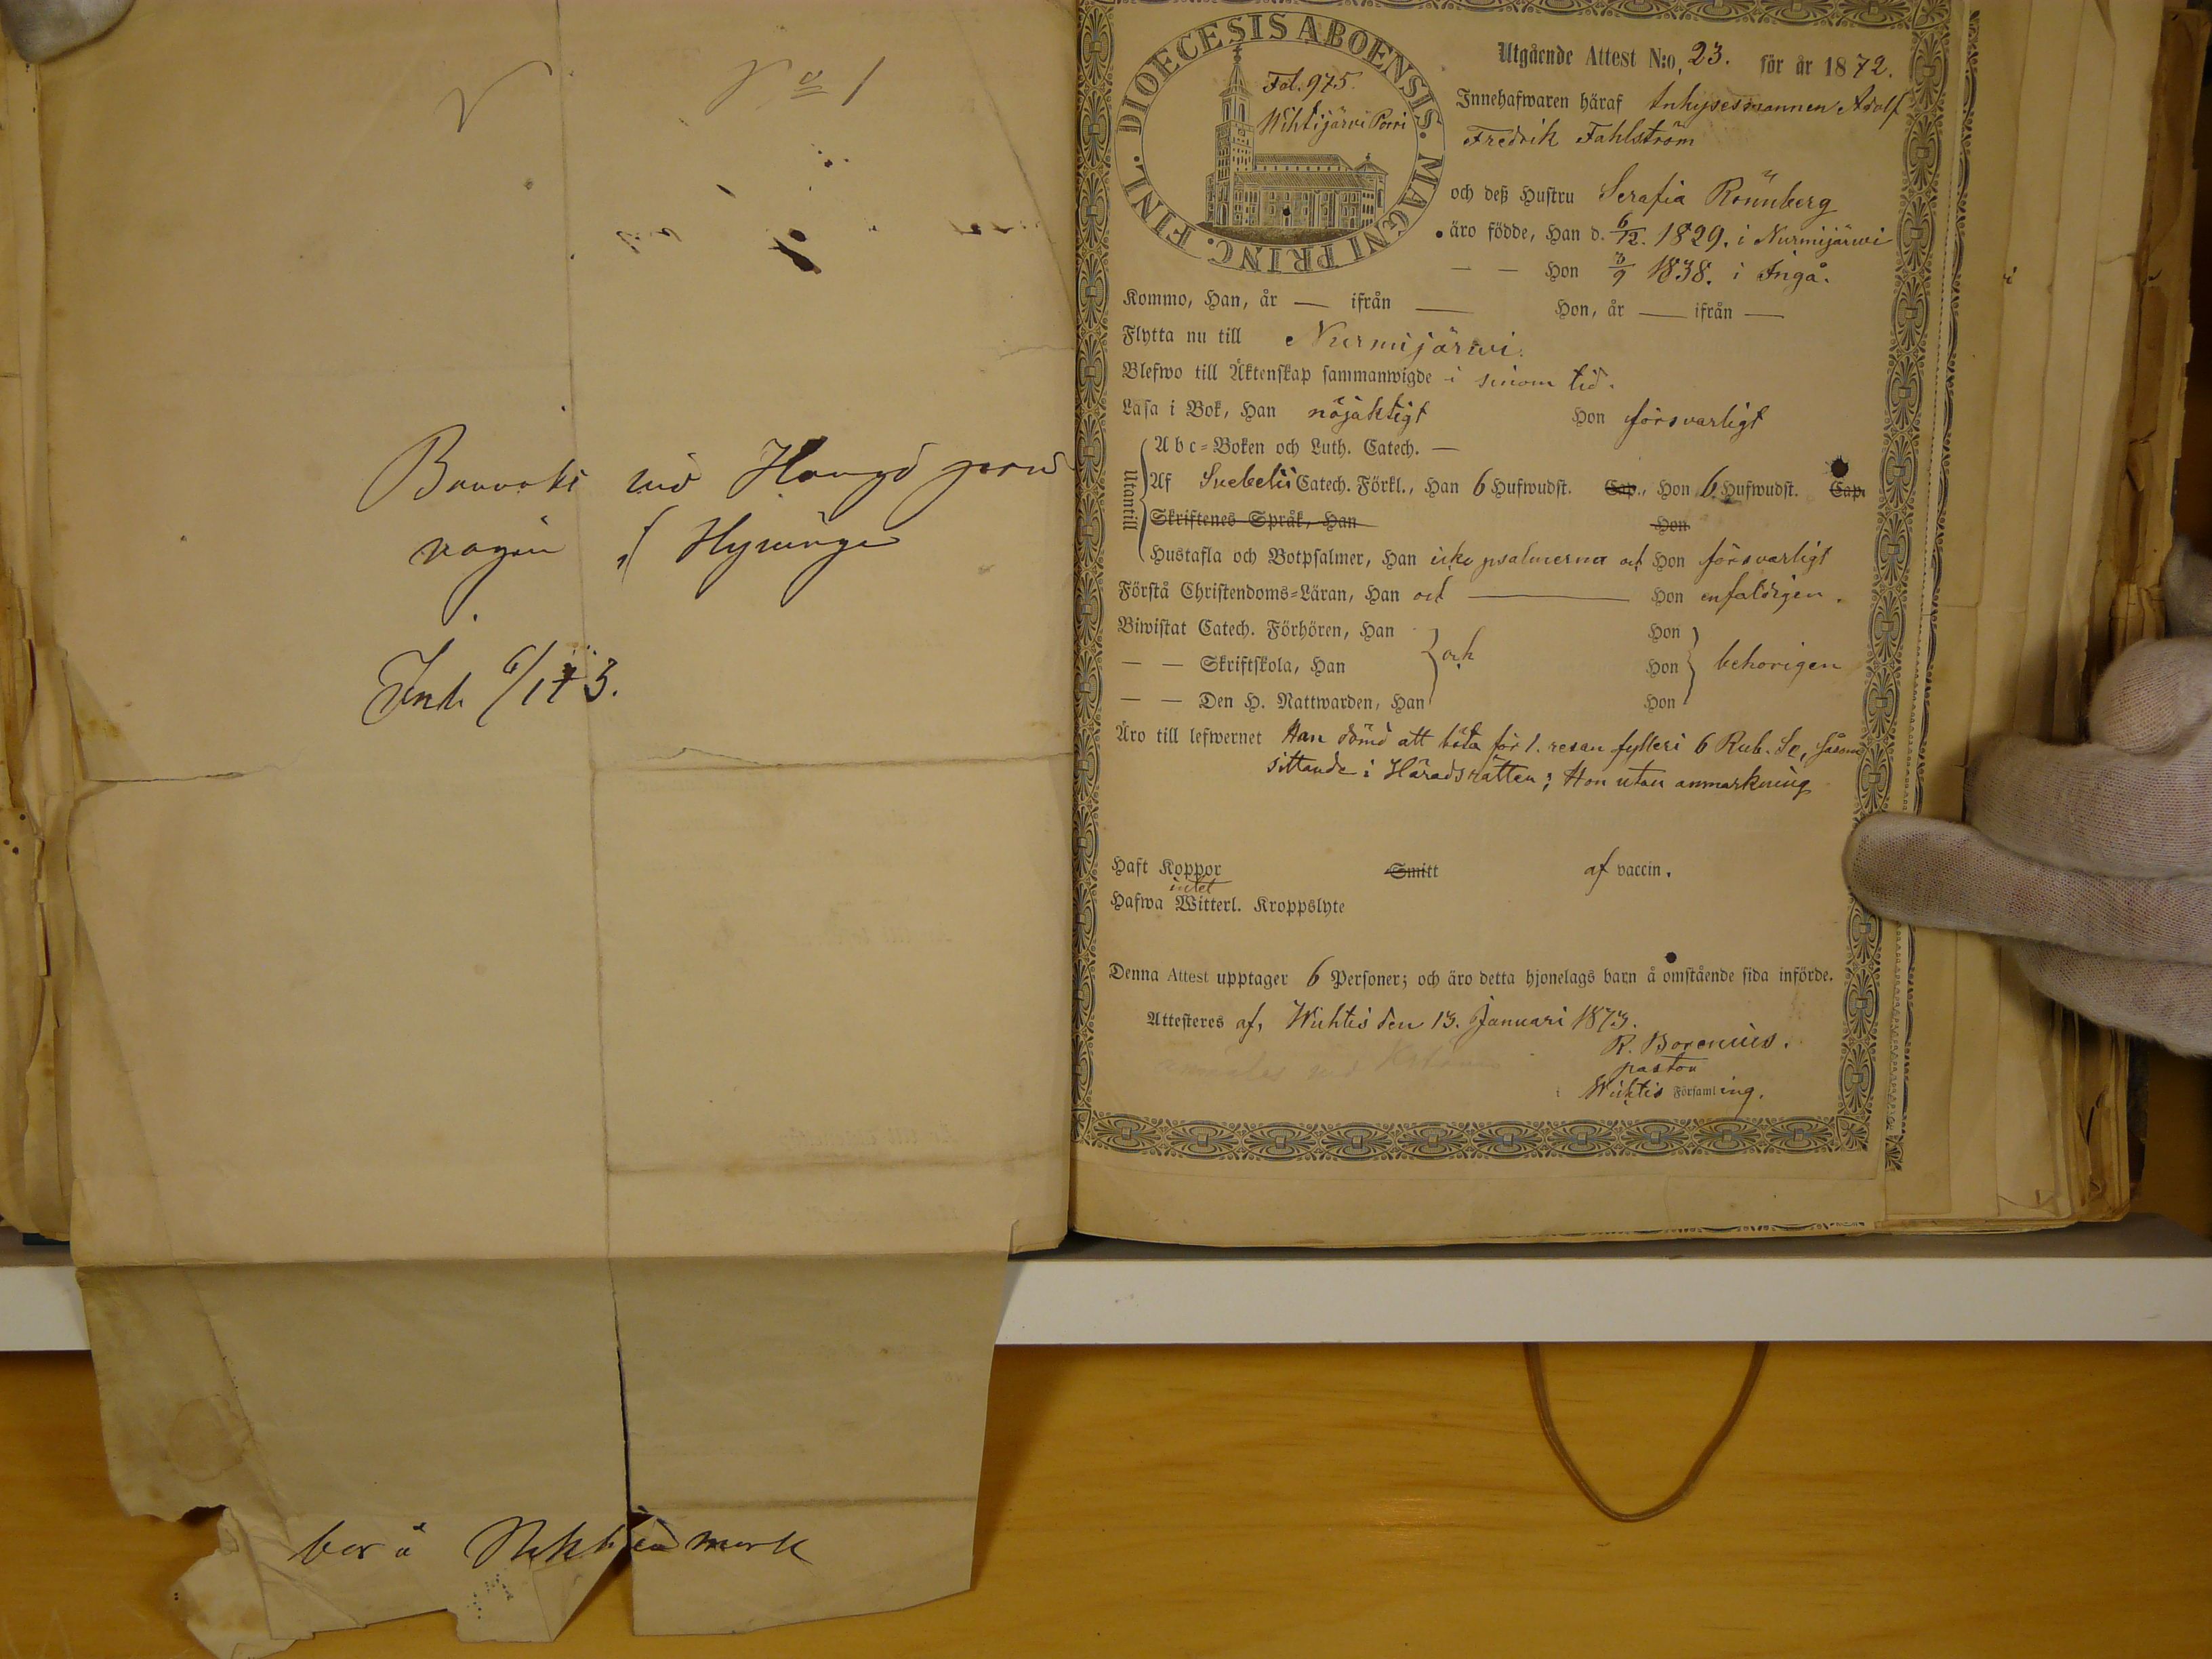 N:o 1
Barrak vid Hangö jern
vägen Hyvinge
Ink. 6/1 73.
bor å mark
DIOECESIS ABOENSIS. MAGNI PRINC. FINL.
Fol. 975.
Wihtijärvi Porri
Utgående Attest N:o, 23. för år 1872.
Innehafwaren häraf Inhysesmannen Adolf
Fredrik Fahlström
och deß Hustru Serafia Rönnberg
äro födde, Han d. 6/12. 1829. i Nurmijärwi
— — Hon 3/9 1838. i Ingå.
Kommo, Han, år — ifrån — Hon, år — ifrån —
Flytta nu till Nurmijärwi.
Blefwo till Äktenskap sammanwigde i sinom tid.
Läsa i Bok, Han nöjaktigt Hon försvarligt
Utantill
Abc-Boken och Luth. Catech. —
Af Svebelii Catech. Förkl., Han 6 Hufwudst. Cap., Hon 6 Hufwudst. Cap.
Skriftenes Språk, Han Hon
Hustafla och Botpsalmer, Han icke psalmerna och Hon försvarligt
Förstå Christendoms-Läran, Han och — Hon enfaldigen.
Biwistat Catech. Förhören, Han Hon
— — Skriftskola, Han och Hon behörigen
— — Den H. Nattwarden, Han Hon
Äro till lefwernet Han dömd att böta för 1. resan fylleri 6 Rub. Se, såsom
sittande i Häradsrätten; Hon utan anmärkning
Haft Koppor Smitt af vaccin.
intet
Hafwa Witterl. Kroppslyte
Denna Attest upptager 6 Personer; och äro detta hjonelags barn å omstående sida införde.
Attesteres af, Wichtis den 13. Januari 1873.
R. Borenius.
pastor
i Wichtis Församling.